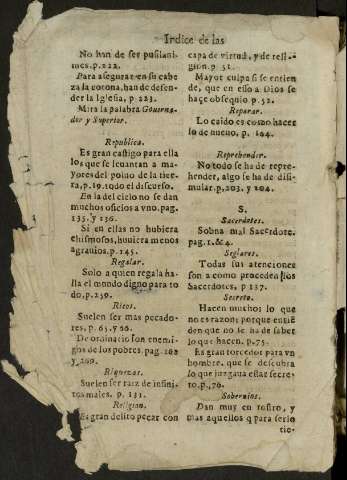 Indice de las
No han de ser pusilani-
mes. p. 222.
Para asegurar en su cabe
za la corona, han de defen-
der la Iglesia, p 223.
Mira la palabra Governa-
dor y Superior.
Republica.
Es gran castigo para ella
los que se leuantan a ma-
yores del poluo de la tie-
rra, p. 19. todo el discurso.
En la del cielo no se dan
muchos oficios a vno. pag.
135. y 136.
Si en ellas no hubiera
chismosos, huuiera menos
agrauios. p. 145.
Regalar.
Solo a quien regala ha-
lla el mundo digno para to
do, p. 250.
Ricos.
Suelen ser mas pecado-
res, p. 65. y 66.
De ordinario son enemi-
gos de los pobres, pag. 168
y 269.
Riquezas.
Suelen ser raiz de infini-
tos males, p. 131.
Religion.
Es gran delito pecar con
capa de virtud, y de reli-
gion. p. 51.
Mayor culpa si se entien
de, que en esso a Dios se
haçe obsequio p. 52.
Reparar.
Lo caido es como hacer
lo de nueuo, p. 164.
Reprehender.
No todo se ha de repre-
hender, algo se ha de disi-
mular. p. 203. y 204.
S.
Sacerdotes.
Sobna mal Sacerdote.
pag. 1. & 4.
Seglares.
Todas sus atenciones
son a como proceden los
Sacerdotes, p 137.
Secreto.
Hacen muchos lo que
no es razon; porque entié
den que no se ha de saber
lo que hacen, p. 75.
Es gran torcedor para vn
hombre, que se descubra
lo que juzgaua estaz secre-
to, p. 76.
Soberuios.
Dan muy en rostro, y
mas aquellos q̃ para serlo
tie-